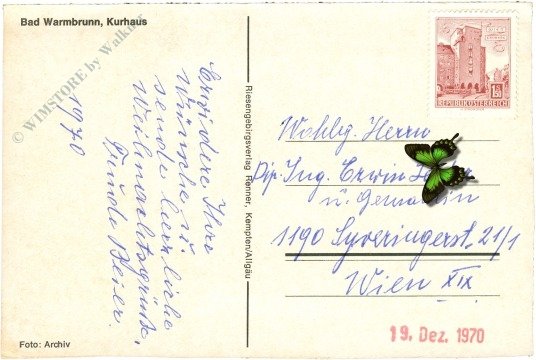 Bad Warmbrunn, Kurhaus
© WIMSTORE by Walku
Erwidere Ihre
Wünsche u.
sende herzliche
Weihnachtsgrüße.
Beier.
1970
Foto: Archiv
Riesengebirgsverlag Renner, Kempten/Allgäu
1.50
REPUBLIK ÖSTERREICH
Wohlg. Herrn
Dip. Ing. Erwin
u. Gemahlin
1190 Syveringerst. 21/1
Wien XIX
19. Dez. 1970